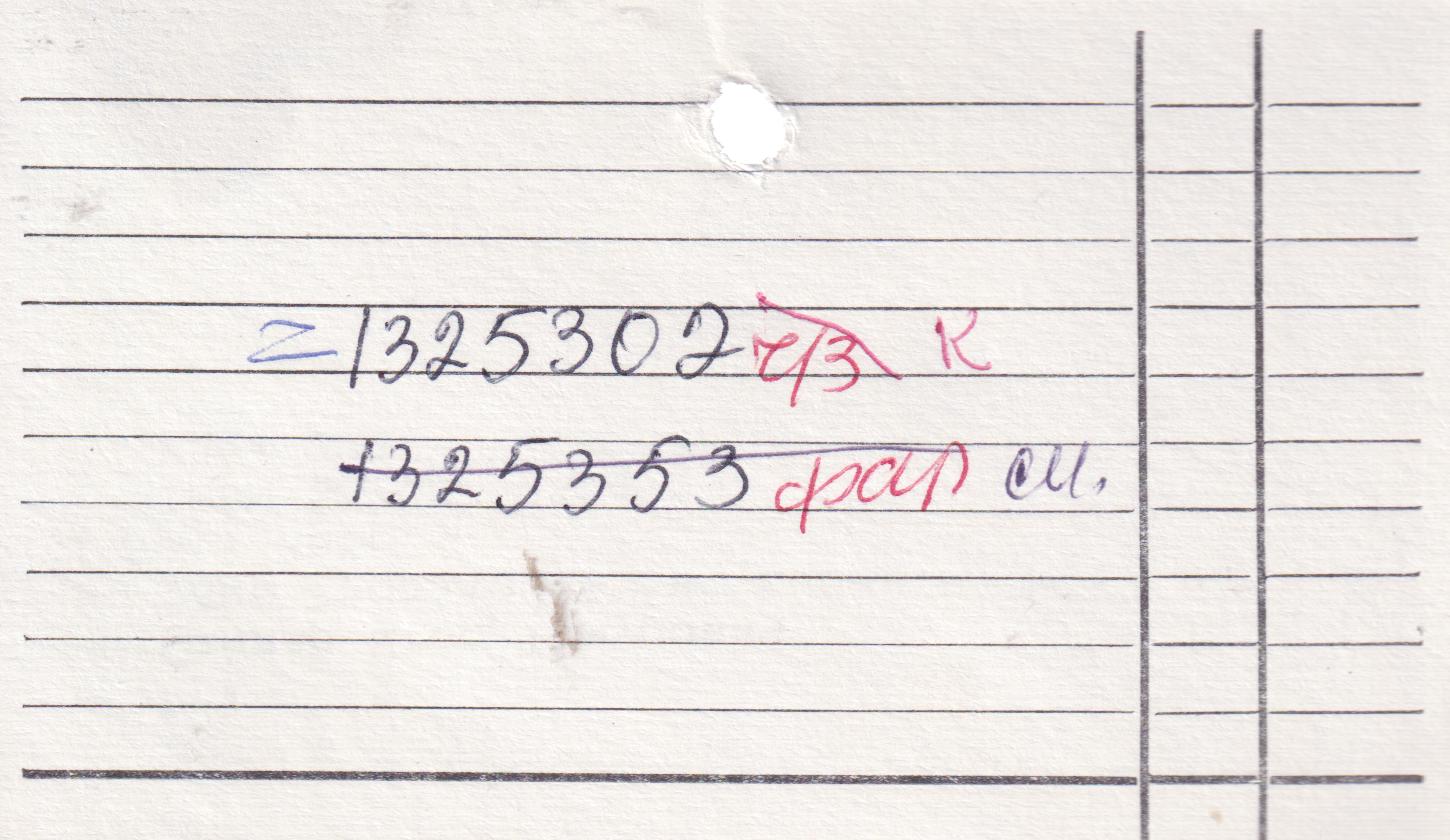 = 1325302 ч/з К
1325353 фап см.